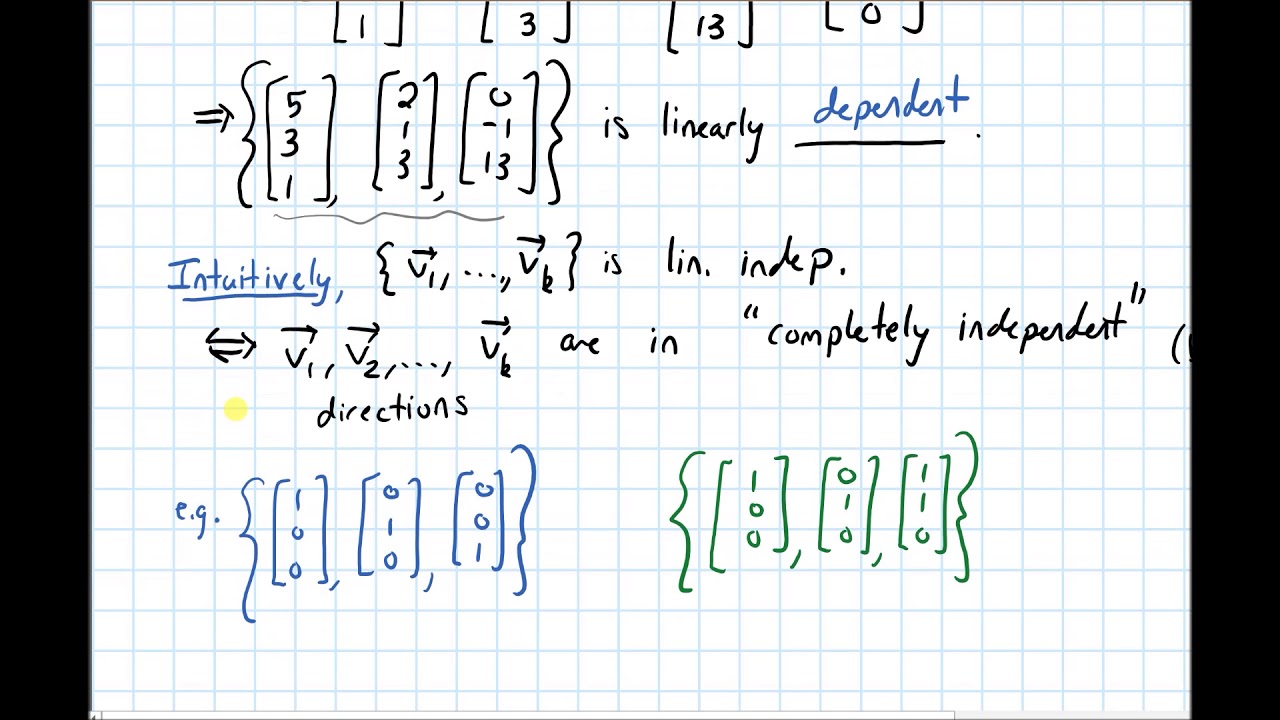 [1] [3] [13] [0]
⇒ { [5 3 1], [2 1 3], [0 -1 13] } is linearly dependent.
Intuitively, { v⃗₁, ..., v⃗ₖ } is lin. indep.
⇔ v⃗₁, v⃗₂, ..., v⃗ₖ are in "completely independent" (
directions
e.g. { [1 0 0], [0 1 0], [0 0 1] } { [1 0 0], [0 1 0], [1 1 0] }